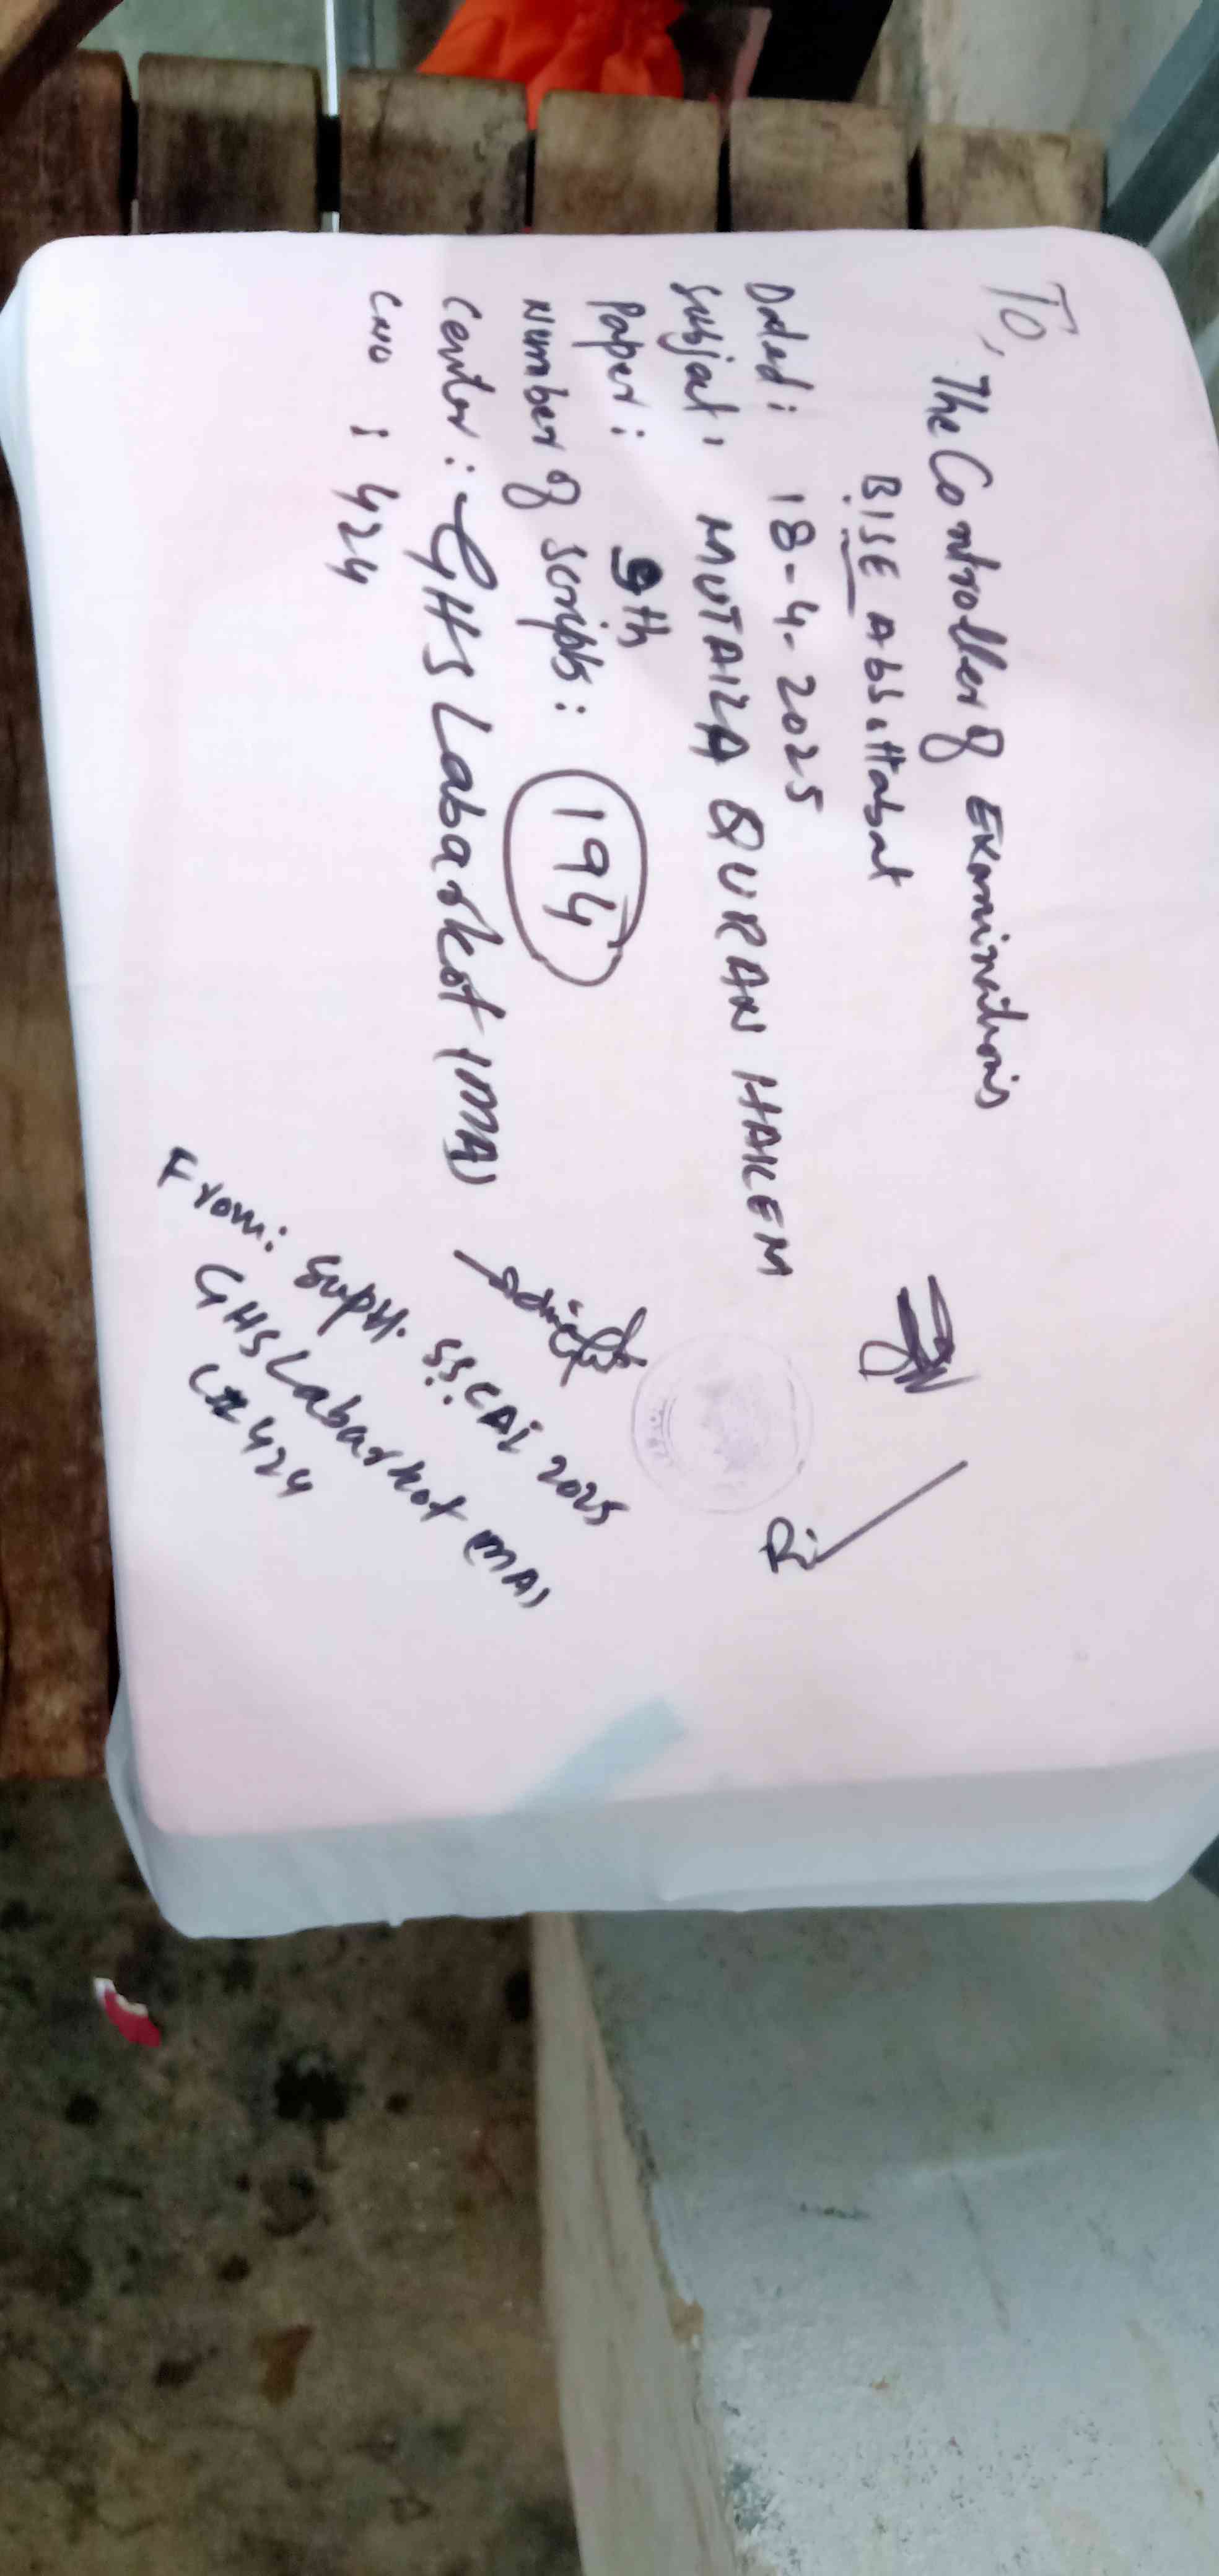 To,
The Controller of Examinations
BISE Abbottabad
Dated: 18-4-2025
Subject: MUTAIZA QURAN HAKEM
Paper: 9th
Number of scripts: 194
Center: GHS Labarkot (MA)
CNO : 424
From: Supdt. SSCAI 2025
GHS Labarkot (MA)
C# 424